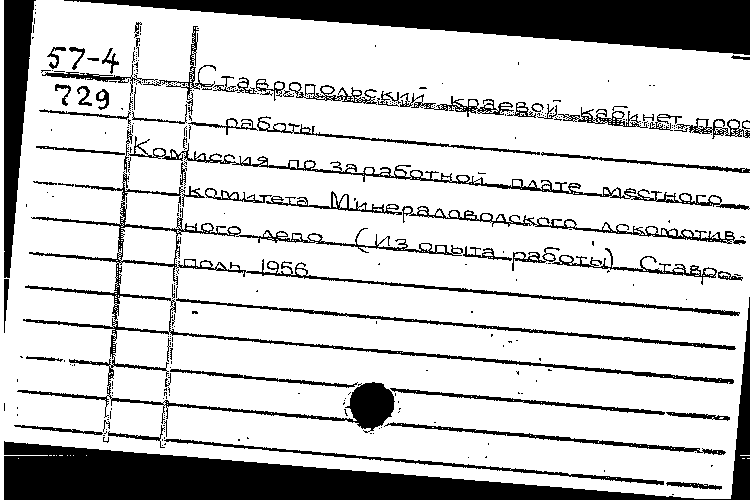 57-4
729
Ставропольский краевой кабинет проф
работы.
Комиссия по заработной плате местного
комитета Минераловодского локомотив-
ного депо. (Из опыта работы). Ставро-
поль, 1956.